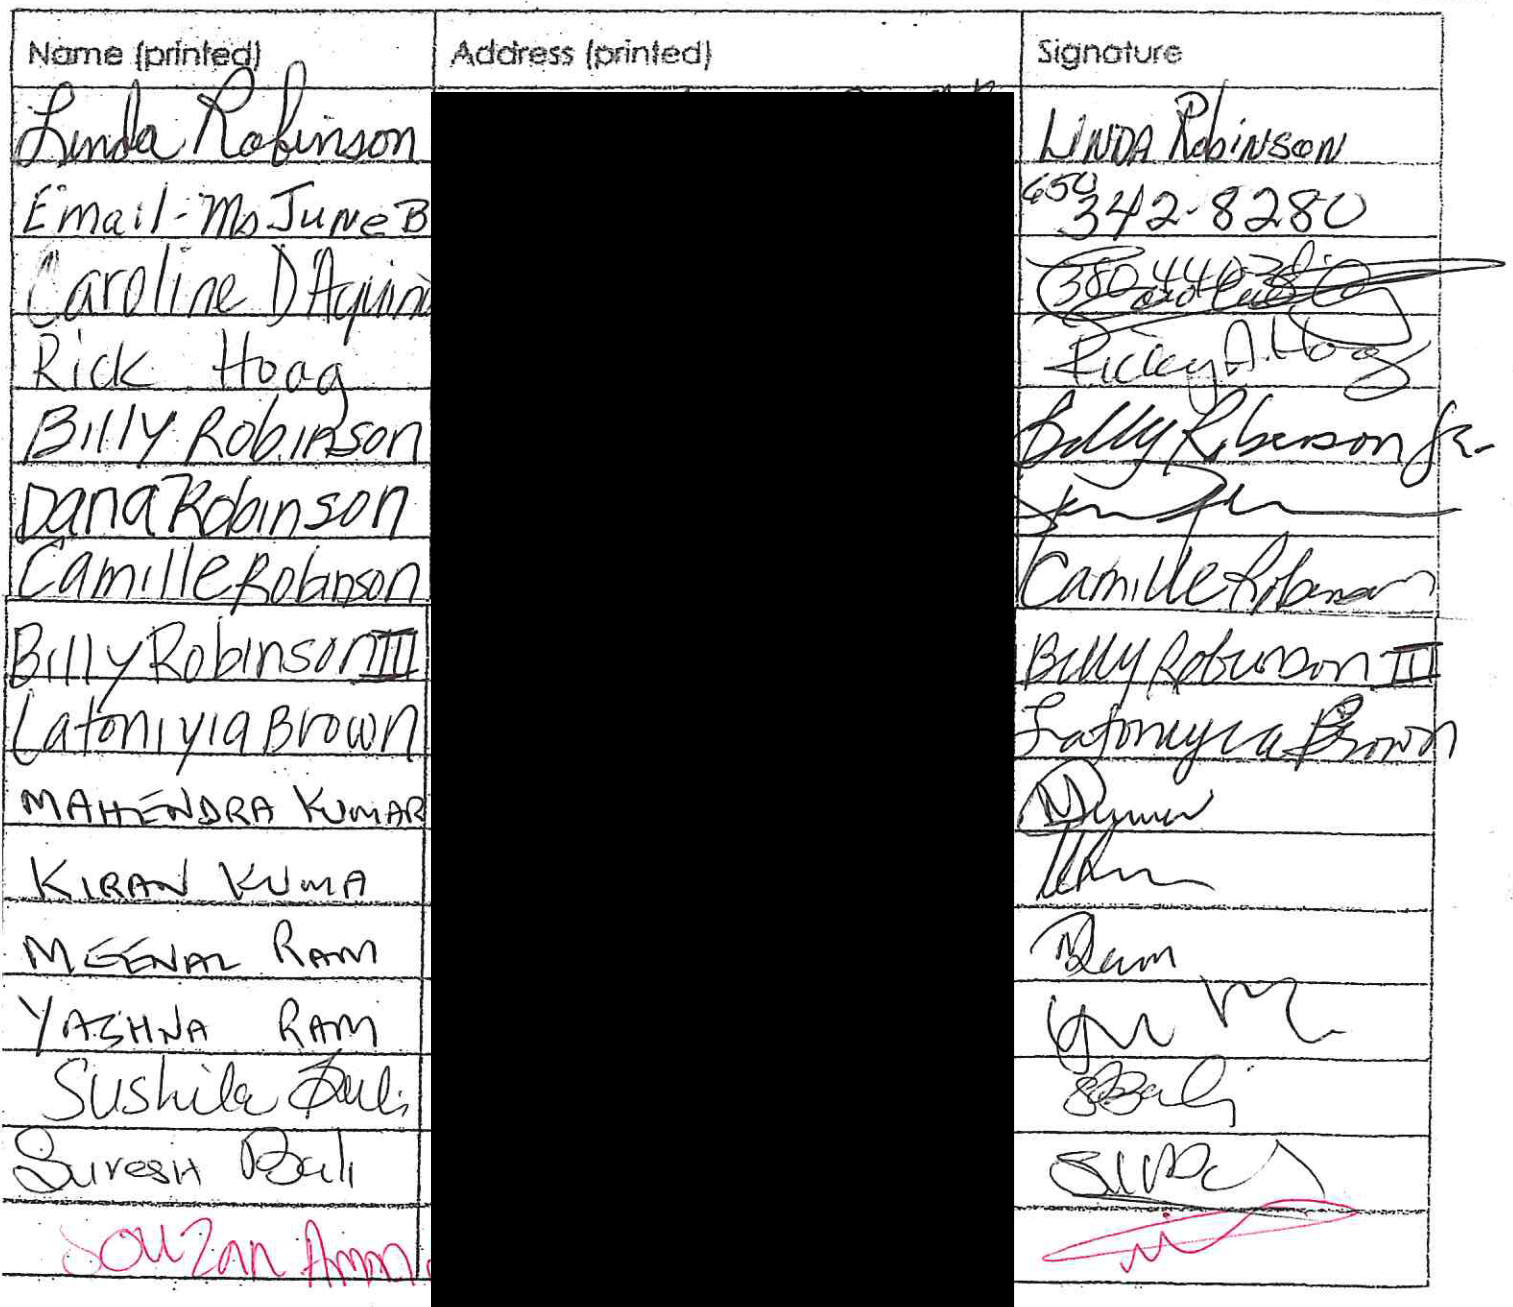 Name (printed) Address (printed) Signature
Linda Robinson LINDA Robinson
Email-Ms JuneB 650 342-8280
Caroline D'Aquin
Rick Hoag Ricky A. Hoag
Billy Robinson Billy Robinson Jr.
Dana Robinson
Camille Robinson Camille Robinson
Billy Robinson III Billy Robinson III
Latoniyia Brown Latoniyia Brown
MAHENDRA KUMAR
KIRAN KUMA
MEENAL RAM
YASHNA RAM
Sushila Bali SBali
Suresh Bali
Souzan Amm